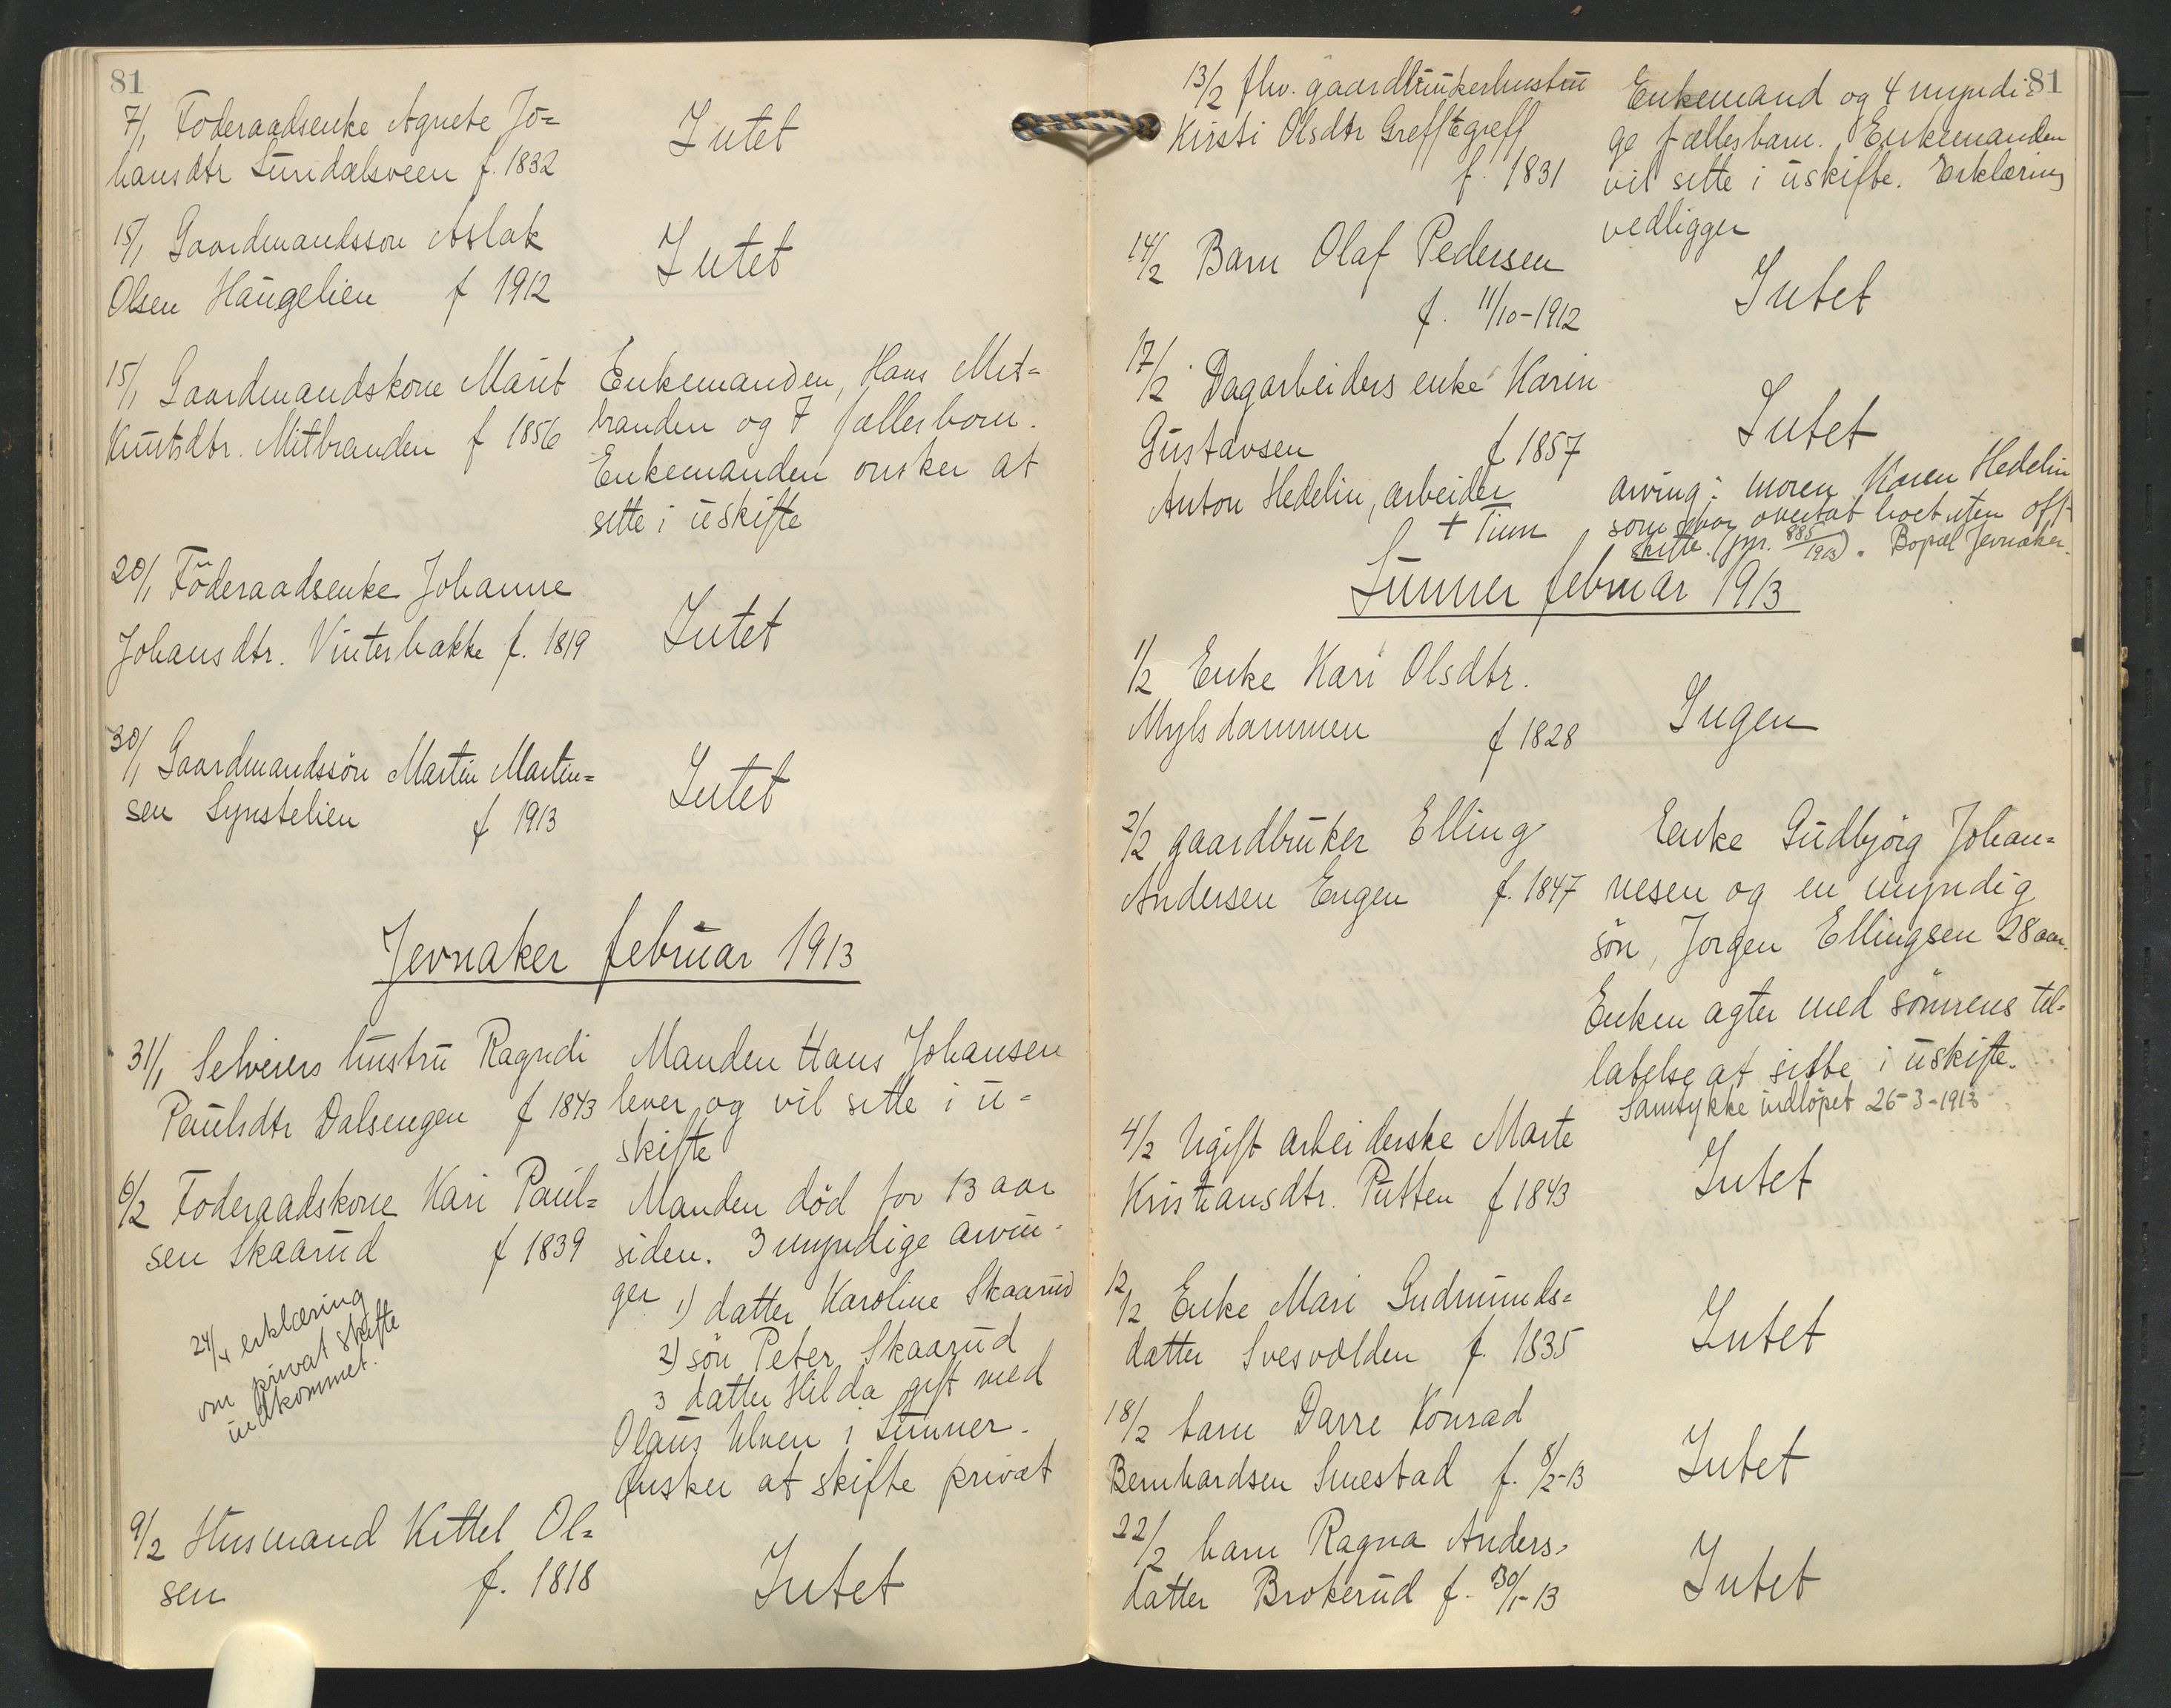 81
7/1 Föderaadsenke Agnete Jo=
hansdtr Lundalsveen f. 1832
Intet
15/1 Gaardmandsson Aslak
Olsen Haugelien f 1912
Intet
15/1 Gaardmandskone Marit
Knutsdtr. Mitbranden f 1856
Enkemanden, Hans Mit-
branden og 7 fællesborn.
Enkemanden onsker at
sitte i uskifte
20/1 Föderaadsenke Johanne
Johansdtr. Vinterbakke f. 1819
Intet
30/1 Gaardmandssön Martin Martin=
sen Synstelien f 1913
Intet
Jevnaker februar 1913
31/1 Selveiers hustru Ragndi
Paulsdtr Dalsengen f 1843
Manden Hans Johansen
lever og vil sitte i u-
skifte
6/2 Foderaadskone Kari Paul=
sen Skaarud f 1839
24/4 erklæring
om privat skifte
indkommet.
Manden död for 13 aar
siden. 3 myndige arvin-
ger 1) datter Karoline Skaarud
2) sön Peter Skaarud
3 datter Hilda gift med
Olaus Ulven i Lunner.
Ønsker at skifte privat
9/2 Husmand Kittel Ol=
sen f. 1818
Intet
81
13/2 fhv. gaardbrukerhustru
Kirsti Olsdtr Grefftegreff
f. 1831
Enkemand og 4 myndi-
ge fællesbarn. Enkemanden
vil sitte i uskifte. Erklæring
vedligger
14/2 Barn Olaf Pedersen
f. 11/10-1912
Intet
17/2 Dagarbeiders enke Karin
Gustavsen f 1857
Intet
Anton Hedelin, arbeider
+ Tinn
arving: moren Karen Hedelin
som har overtat boet uten off.
skifte. (jnr. 885/1913). Bopæl Jevnaker.
Lunner februar 1913
1/2 Enke Kari Olsdtr.
Mylsdammen f 1828
Ingen
2/2 gaardbruker Elling
Andersen Engen f. 1847
Enke Gudbjörg Johan=
nesen og en myndig
sön, Jorgen Ellingsen 28 aar.
Enken agter med sönnens til-
latelse at sitte i uskifte.
Samtykke indlöpet 26-3-1913
4/2 Ugift arbeiderske Marte
Kristiansdtr. Putten f 1843
Intet
12/2 Enke Mari Gudmunds=
datter Svesvolden f. 1835
Intet
18/2 barn Darre Konrad
Bernhardsen Smestad f. 8/2-13
Intet
22/2 barn Ragna Anders=
datter Brokerud f. 30/1-13
Intet